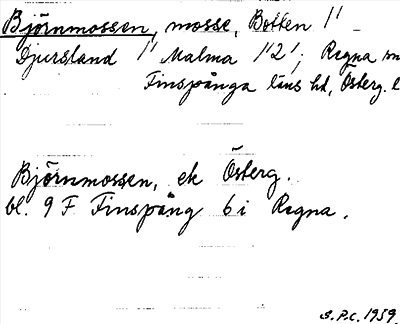 Björnmossen, mosse, Botten 1'
Djursland 1' Malma 1'2'; Regna sn
Finspånga läns hd, Österg. l
Björnmossen, ek Österg.
bl. 9 F Finspång 6 i Regna.
S.P.C. 1959.